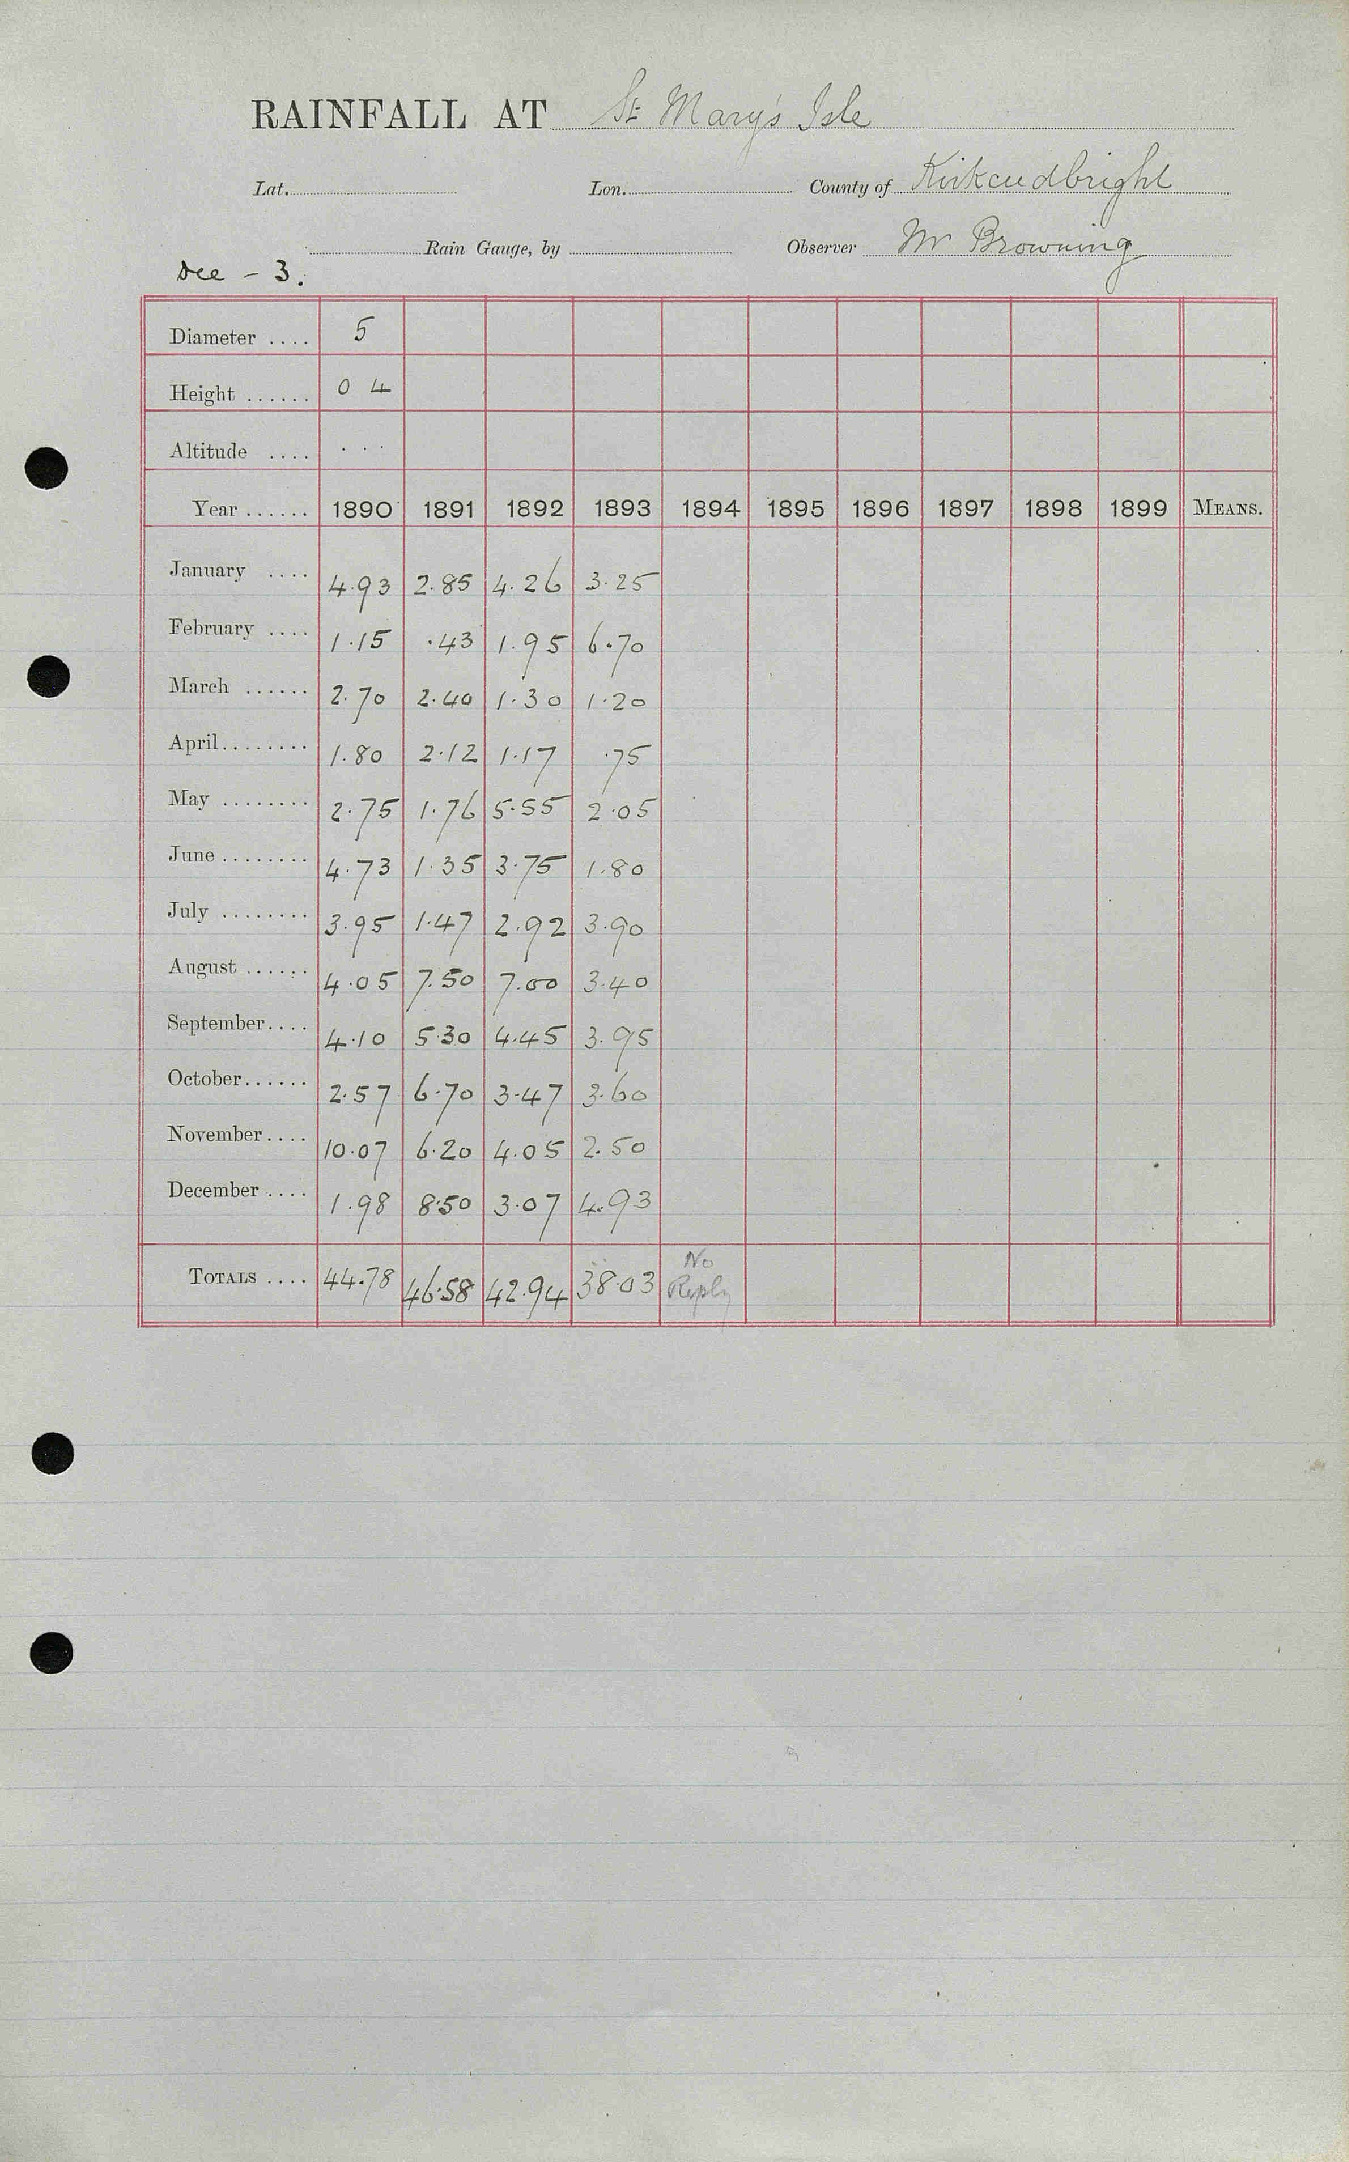 RAINFALL AT St Mary's Isle
Lat. Lon. County of Kirkcudbright
Rain Gauge, by Observer Mr Browning
Dee - 3.
Diameter .... 5
Height ...... 0 4
Altitude .... . . .
Year ...... 1890 1891 1892 1893 1894 1895 1896 1897 1898 1899 MEANS.
January .... 4.93 2.85 4.26 3.25
February .... 1.15 .43 1.95 6.70
March ...... 2.70 2.40 1.30 1.20
April........ 1.80 2.12 1.17 .75
May ........ 2.75 1.76 5.55 2.05
June ........ 4.73 1.35 3.75 1.80
July ........ 3.95 1.47 2.92 3.90
August ...... 4.05 7.50 7.00 3.40
September.... 4.10 5.30 4.45 3.95
October...... 2.57 6.70 3.47 3.60
November.... 10.07 6.20 4.05 2.50
December .... 1.98 8.50 3.07 4.93
TOTALS .... 44.78 46.58 42.94 38.03 No Reply